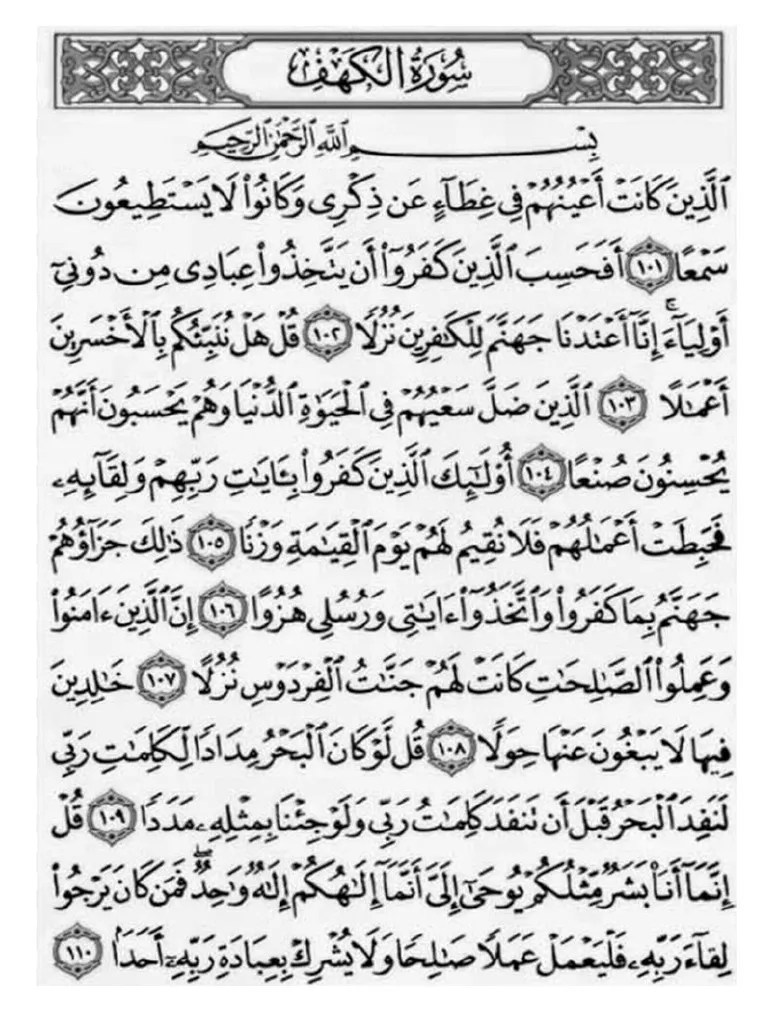 سُورَةُ الكَهْفِ
بِسْمِ ٱللَّهِ ٱلرَّحْمَٰنِ ٱلرَّحِيمِ
ٱلَّذِينَ كَانَتْ أَعْيُنُهُمْ فِى غِطَآءٍ عَن ذِكْرِى وَكَانُوا۟ لَا يَسْتَطِيعُونَ
سَمْعًا ١٠١ أَفَحَسِبَ ٱلَّذِينَ كَفَرُوٓا۟ أَن يَتَّخِذُوا۟ عِبَادِى مِن دُونِىٓ
أَوْلِيَآءَ ۚ إِنَّآ أَعْتَدْنَا جَهَنَّمَ لِلْكَٰفِرِينَ نُزُلًا ١٠٢ قُلْ هَلْ نُنَبِّئُكُم بِٱلْأَخْسَرِينَ
أَعْمَٰلًا ١٠٣ ٱلَّذِينَ ضَلَّ سَعْيُهُمْ فِى ٱلْحَيَوٰةِ ٱلدُّنْيَا وَهُمْ يَحْسَبُونَ أَنَّهُمْ
يُحْسِنُونَ صُنْعًا ١٠٤ أُو۟لَٰٓئِكَ ٱلَّذِينَ كَفَرُوا۟ بِـَٔايَٰتِ رَبِّهِمْ وَلِقَآئِهِۦ
فَحَبِطَتْ أَعْمَٰلُهُمْ فَلَا نُقِيمُ لَهُمْ يَوْمَ ٱلْقِيَٰمَةِ وَزْنًا ١٠٥ ذَٰلِكَ جَزَآؤُهُمْ
جَهَنَّمُ بِمَا كَفَرُوا۟ وَٱتَّخَذُوٓا۟ ءَايَٰتِى وَرُسُلِى هُزُوًا ١٠٦ إِنَّ ٱلَّذِينَ ءَامَنُوا۟
وَعَمِلُوا۟ ٱلصَّٰلِحَٰتِ كَانَتْ لَهُمْ جَنَّٰتُ ٱلْفِرْدَوْسِ نُزُلًا ١٠٧ خَٰلِدِينَ
فِيهَا لَا يَبْغُونَ عَنْهَا حِوَلًا ١٠٨ قُل لَّوْ كَانَ ٱلْبَحْرُ مِدَادًا لِّكَلِمَٰتِ رَبِّى
لَنَفِدَ ٱلْبَحْرُ قَبْلَ أَن تَنفَدَ كَلِمَٰتُ رَبِّى وَلَوْ جِئْنَا بِمِثْلِهِۦ مَدَدًا ١٠٩ قُلْ
إِنَّمَآ أَنَا۠ بَشَرٌ مِّثْلُكُمْ يُوحَىٰٓ إِلَىَّ أَنَّمَآ إِلَٰهُكُمْ إِلَٰهٌ وَٰحِدٌ ۖ فَمَن كَانَ يَرْجُوا۟
لِقَآءَ رَبِّهِۦ فَلْيَعْمَلْ عَمَلًا صَٰلِحًا وَلَا يُشْرِكْ بِعِبَادَةِ رَبِّهِۦٓ أَحَدًۢا ١١٠